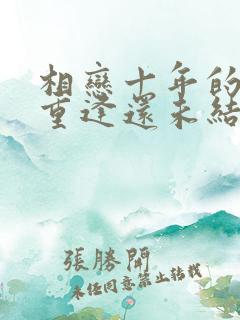 相戀十年的
重逢還未結
張勝開
未經同意禁止轉載